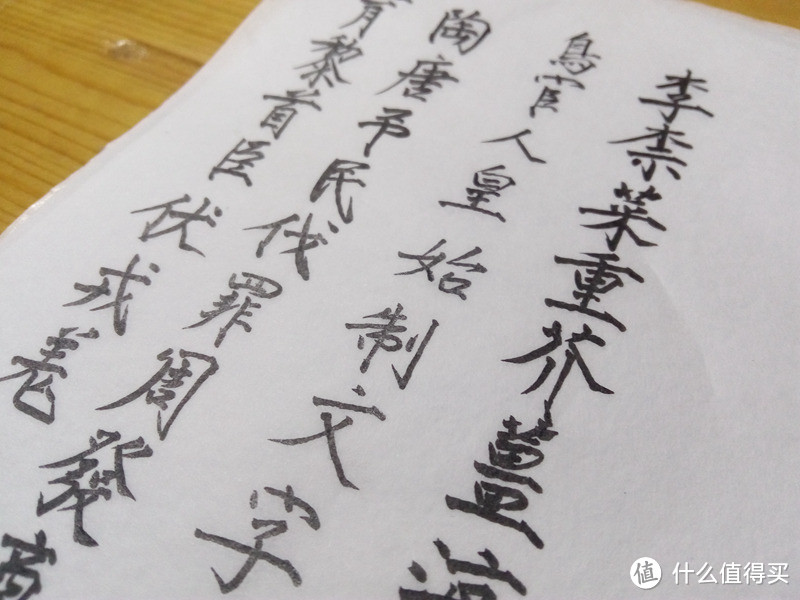 李柰菜重芥薑海
鳥官人皇始制文字
陶唐弔民伐罪周發商
育黎首臣伏戎羌
值 什么值得买